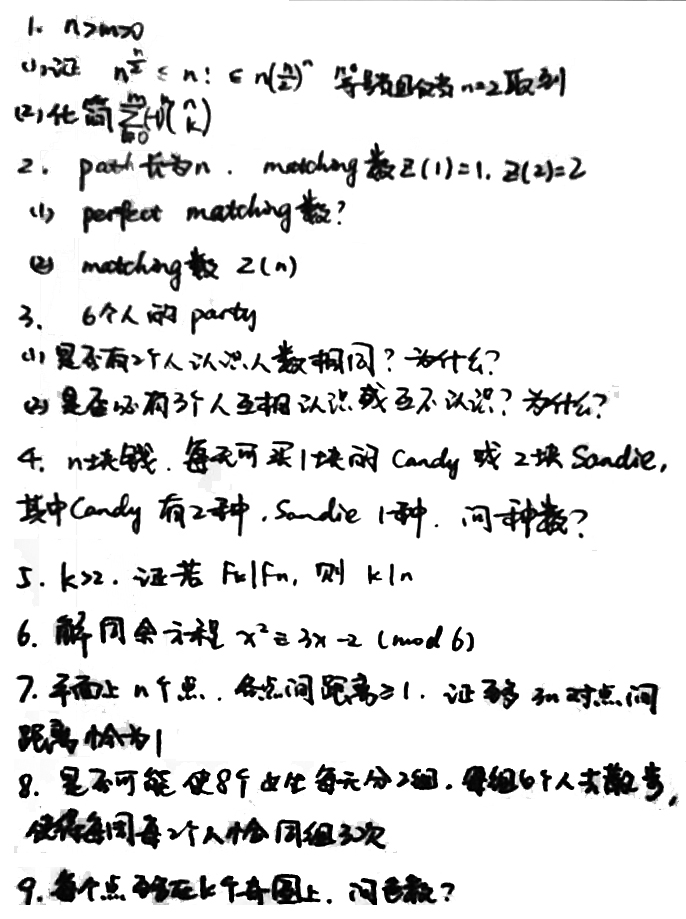 1. n>m>0
(1) 证 n^{n/2} ≤ n! ≤ n(n/2)^n 等号当且仅当 n=2 取到
(2) 化简 \sum_{k=0}^{m}(-1)^k\binom{n}{k}
2. path 长为n. matching 数 Z(1)=1, Z(2)=2
(1) perfect matching 数?
(2) matching 数 Z(n)
3. 6个人的 party
(1) 是否有2个人认识人数相同? 为什么?
(2) 是否必有3个人互相认识或互不认识? 为什么?
4. n块钱. 每天可买1块的 Candy 或 2块 Sandie,
其中Candy 有2种, Sandie 1种. 问种数?
5. k>2. 证若 Fk|Fn, 则 k|n
6. 解同余方程 x²≡3x-2 (mod 6)
7. 平面上 n个点. 各点间距离≥1. 证 至多 3n对点间
距离恰为1
8. 是否可能使8个女生每天分2组, 每组6个人去散步,
使得每周每2个人恰同组3次
9. 每个点至多在k个奇圈上. 问色数?